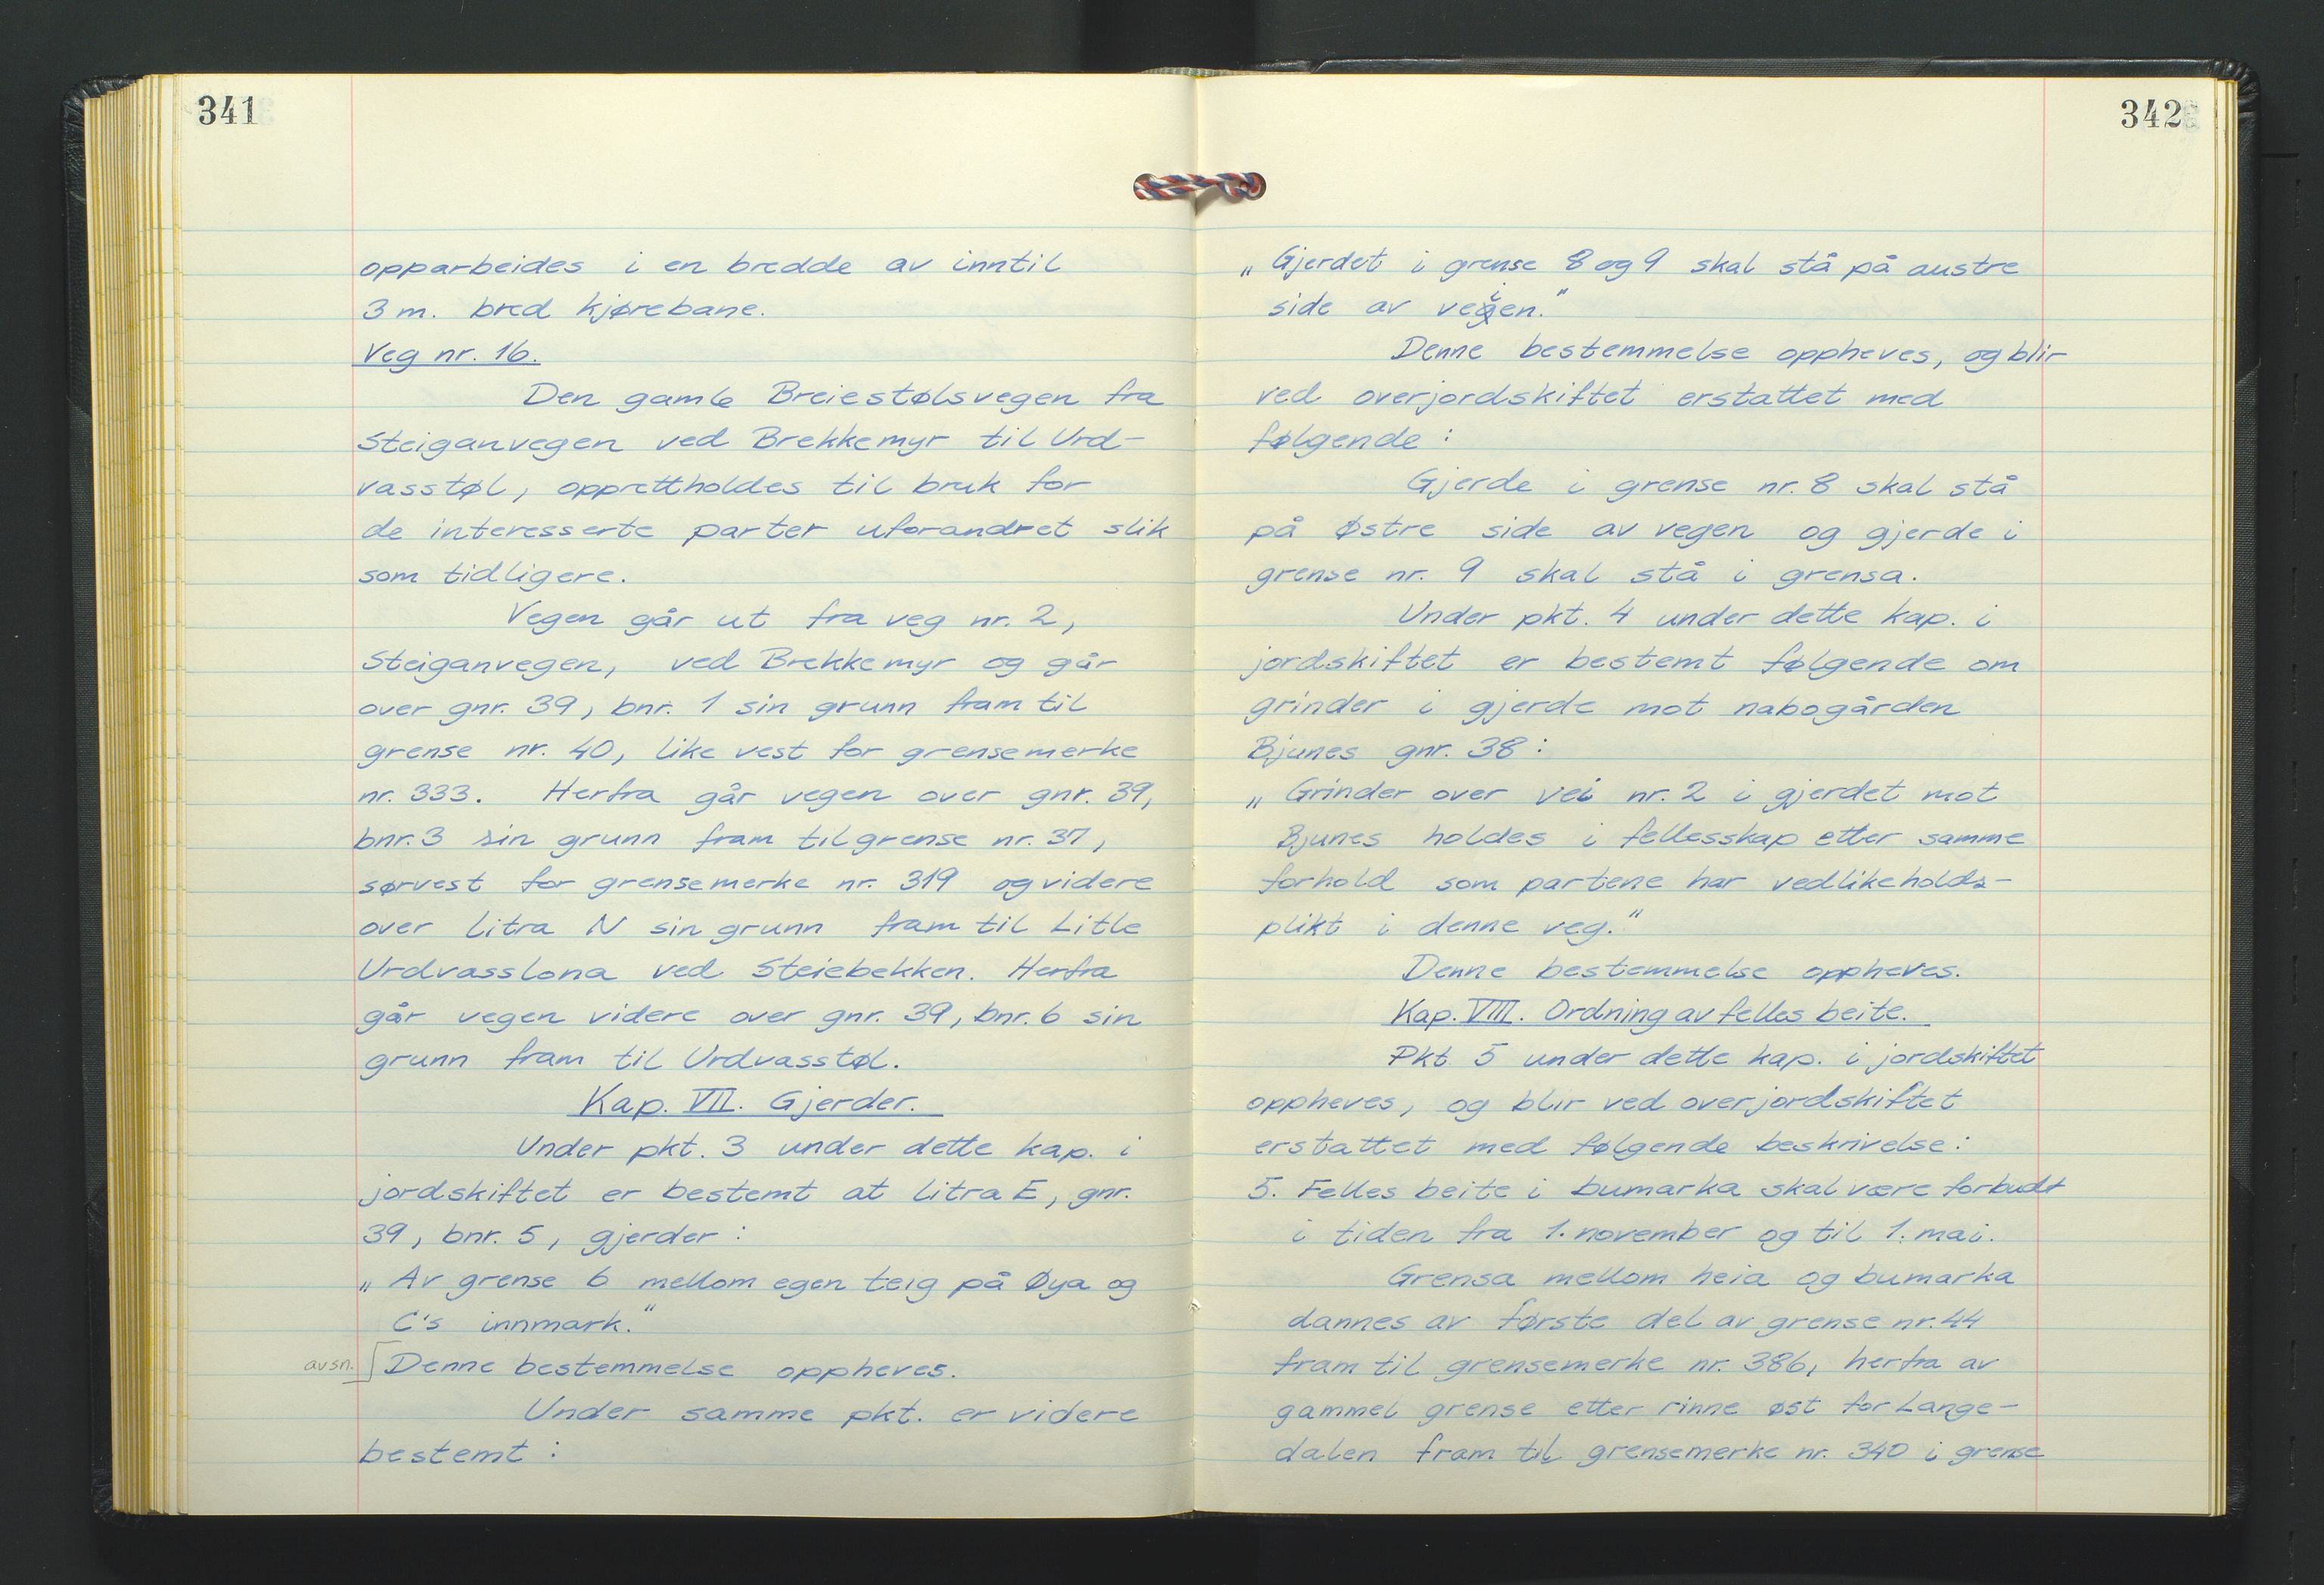 341
opparbeides i en bredde av inntil
3 m. bred kjørebane.
Veg nr. 16.
Den gamle Breiestølsvegen fra
Steiganvegen ved Brekkemyr til Urd-
vasstøl, opprettholdes til bruk for
de interesserte parter uforandret slik
som tidligere.
Vegen går ut fra veg nr. 2,
Steiganvegen, ved Brekkemyr og går
over gnr. 39, bnr. 1 sin grunn fram til
grense nr. 40, like vest for grensemerke
nr. 333. Herfra går vegen over gnr. 39,
bnr. 3 sin grunn fram til grense nr. 37,
sørvest for grensemerke nr. 319 og videre
over litra N sin grunn fram til Litle
Urdvasslona ved Steiebekken. Herfra
går vegen videre over gnr. 39, bnr. 6 sin
grunn fram til Urdvasstøl.
Kap. VII. Gjerder.
Under pkt. 3 under dette kap. i
jordskiftet er bestemt at litra E, gnr.
39, bnr. 5, gjerder:
„Av grense 6 mellom egen teig på Øya og
C's innmark."
avsn. Denne bestemmelse oppheves.
Under samme pkt. er videre
bestemt:
342
„Gjerdet i grense 8 og 9 skal stå på austre
side av veien."
Denne bestemmelse oppheves, og blir
ved overjordskiftet erstattet med
følgende:
Gjerde i grense nr. 8 skal stå
på Østre side av vegen og gjerde i
grense nr. 9 skal stå i grensa.
Under pkt. 4 under dette kap. i
jordskiftet er bestemt følgende om
grinder i gjerde mot nabogården
Bjunes gnr. 38:
„Grinder over vei nr. 2 i gjerdet mot
Bjunes holdes i fellesskap etter samme
forhold som partene har vedlikeholds-
plikt i denne veg."
Denne bestemmelse oppheves.
Kap. VIII. Ordning av felles beite.
Pkt 5 under dette kap. i jordskiftet
oppheves, og blir ved overjordskiftet
erstattet med følgende beskrivelse:
5. Felles beite i bumarka skal være forbudt
i tiden fra 1. november og til 1. mai.
Grensa mellom heia og bumarka
dannes av første del av grense nr. 44
fram til grensemerke nr. 386, herfra av
gammel grense etter rinne øst for Lange-
dalen fram til grensemerke nr. 340 i grense